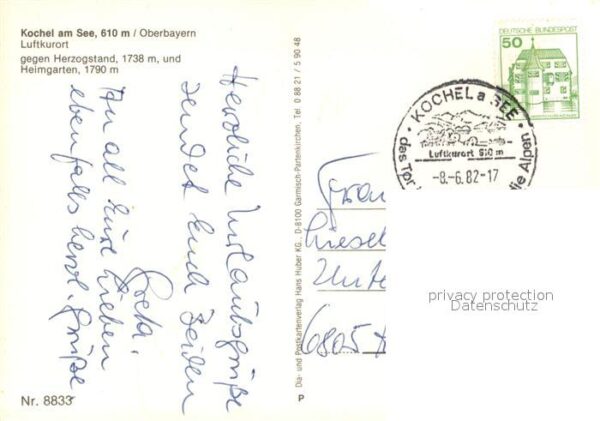 Kochel am See, 610 m / Oberbayern
Luftkurort
gegen Herzogstand, 1738 m, und
Heimgarten, 1790 m
Herzliche Urlaubsgrüße
sendet Euch Beiden
Greta.
An all Eure Lieben
ebenfalls herzl. Grüße
Nr. 8833
Dia- und Postkartenverlag Hans Huber KG., D-8100 Garmisch-Partenkirchen, Tel. 0 88 21 / 5 90 48
P
DEUTSCHE BUNDESPOST
50
KOCHEL a SEE
das Tor
die Alpen
Luftkurort 610 m
-8.-6.82-17
Frau
Liesel
Unte
6805
privacy protection
Datenschutz